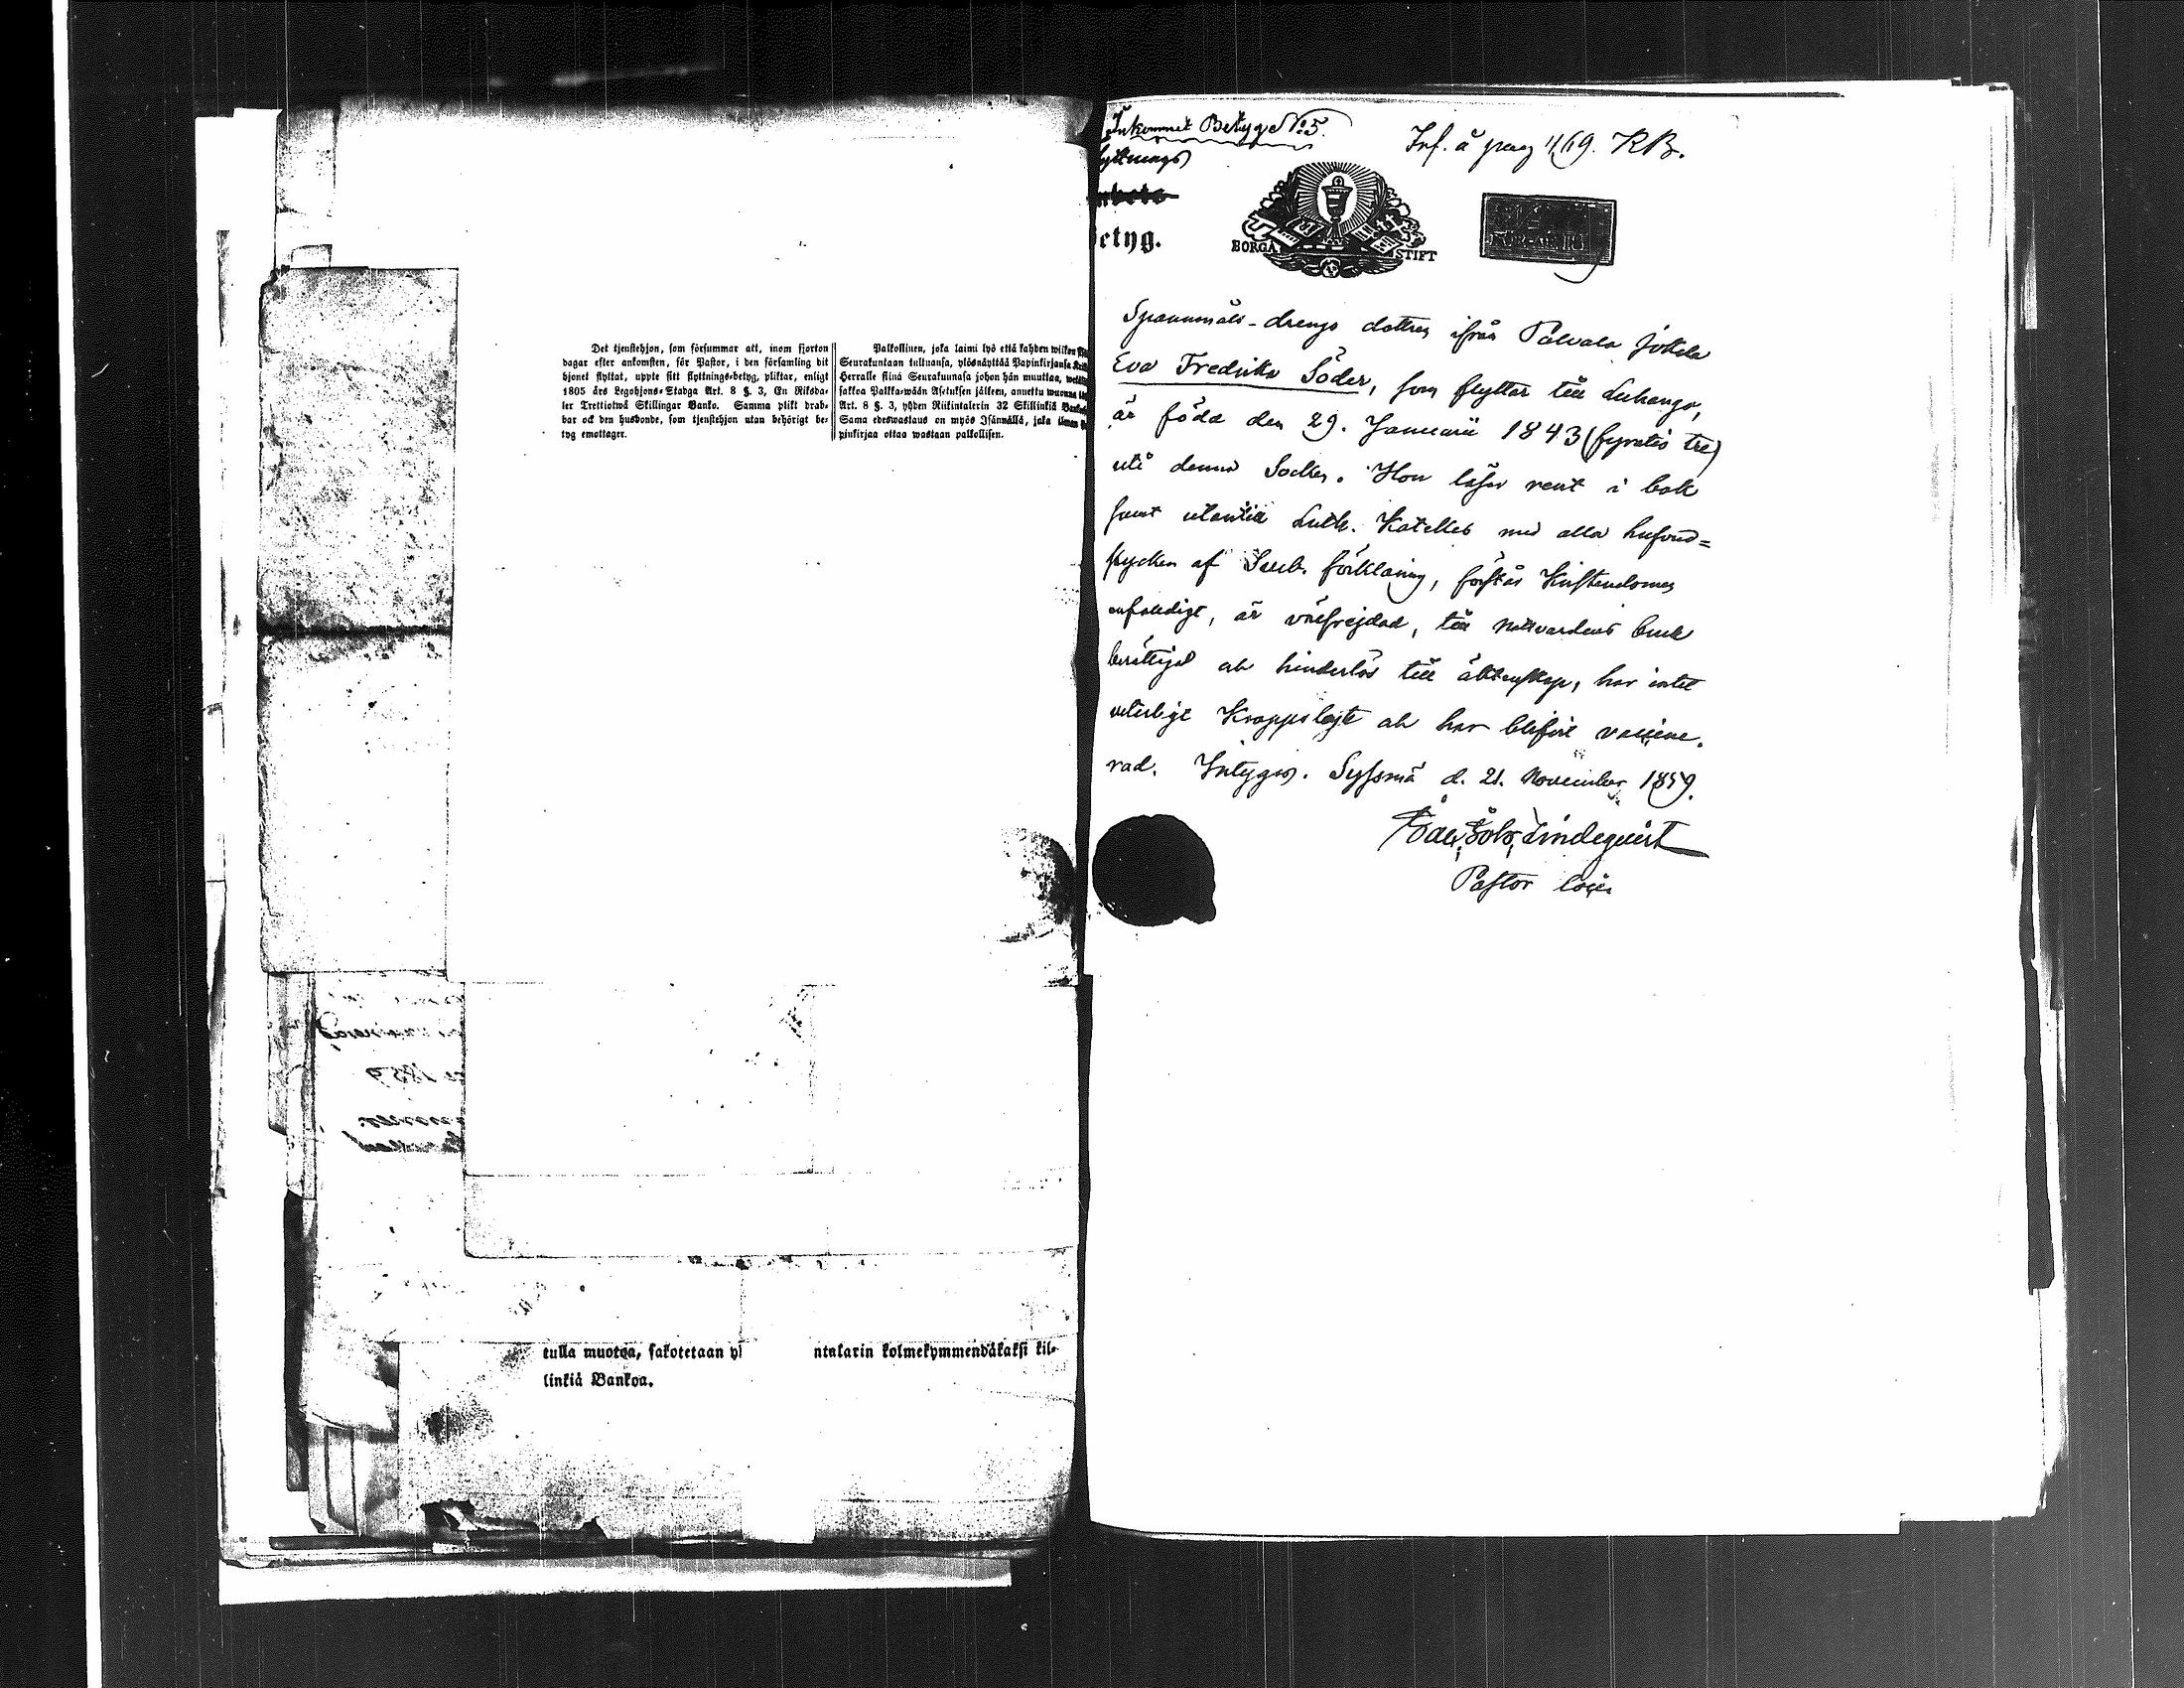 Det tjenstehjon, som försummar att, inom fjorton
dagar efter ankomsten, för Pastor, i den församling dit
hjonet flyttat, uppte sitt flyttnings-betyg, pliktar, enligt
1805 års Legohjons-Stadga Art. 8 §. 3, En Riksda-
ler Trettiotwå Skillingar Banko. Samma plikt drab-
bar ock den husbonde, som tjenstehjon utan behörigt be-
tyg emottager.
Palkollinen, joka laimi lyö että kahden wiikon
Seurakuntaan tultuansa, ylösnäyttää Papinkirjansa
Herralle siinä Seurakunnasa johon hän muuttaa,
sakkoa Palkka-wään Asetuksen jälkeen, annettu wuonna
Art. 8 §. 3, yhden Riikintalerin 32 Skillinkiä
Sama edeswastaus on myös Isännällä, joka ilman
pinkirjaa ottaa wastaan palkollisen.
tulla muotoa, sakotetaan yh
ntalarin kolmekymmendäkaksi kil-
linkiä Bankoa.
Inkommet Betyg No 5.
Inf. å pag 1169. KB.
lyttnings
mbets
Betyg.
BORGÅ STIFT
Spannmåls-drengs dottren ifrån Jokela
Eva Fredrika Söder, som flyttar till Luhango,
är född den 29. Januarii 1843 (fyratio tre)
uti denna Socken. Hon läser rent i bok
samt utantill Luth. Kateches med alla hufvud=
stycken af Sveb. förklaring, förstår Kristendomen
enfaldigt, är välfrejdad, till nattvardens bruk
berättigad och hinderlös till äktenskap, har intet
veterligt Kroppslyte och har blifvit vaccine-
rad. Intygas. Sysmä d. 21. November 1859.
Lindequist
Pastor loci